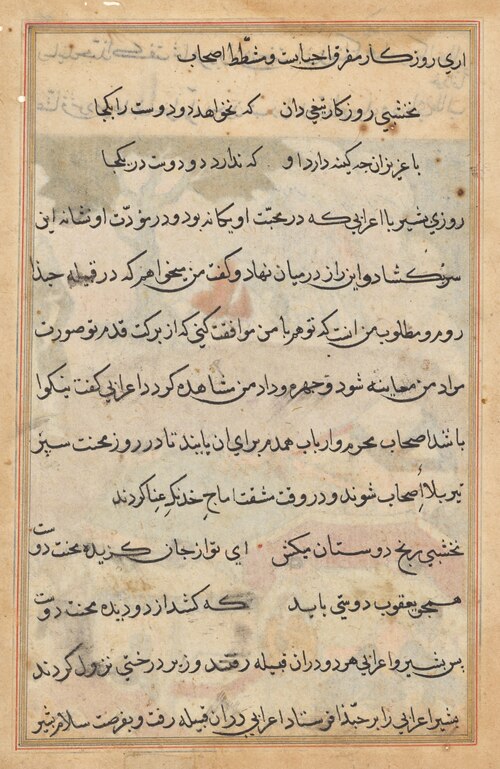 اری روزکار مفرق احبابست و مشطط اصحاب
نخشبی روزکار تیغی دان که نخواهد دو دوست را یکجا
با عزیزان چه کینه دارد او که ندارد دو دوست در یکجا
روزی بشیر با اعرابی که در محبت او یکانه بود و در مودت او نشانه این
سر بکشاد و این راز در میان نهاد و کفت من میخواهم که در قبیله جندا
روم و مطلوب من انست که تو هم با من موافقت کنی که از برکت قدم تو صورت
مراد من معاینه شود و چهره وداد من مشاهده کردد اعرابی کفت نیکو
باشد اصحاب محرم و ارباب همدم برای ان یابند تا در روز محنت سپر
تیر بلا اصحاب شوند و در وقت مشقت اماج خدنک عنا کردند
نخشبی رنج دوستان میکش ای تو از جان کزیده محنت دوست
همجو یعقوب دوستی باید که کشد از دو دیده محنت دوست
پس بشیر و اعرابی هر دو در ان قبیله رفتند و زیر درختی نزول کردند
بشیر اعرابی را بر جندا فرستاد اعرابی در ان قبیله رفت و بفرصت سلام بشیر